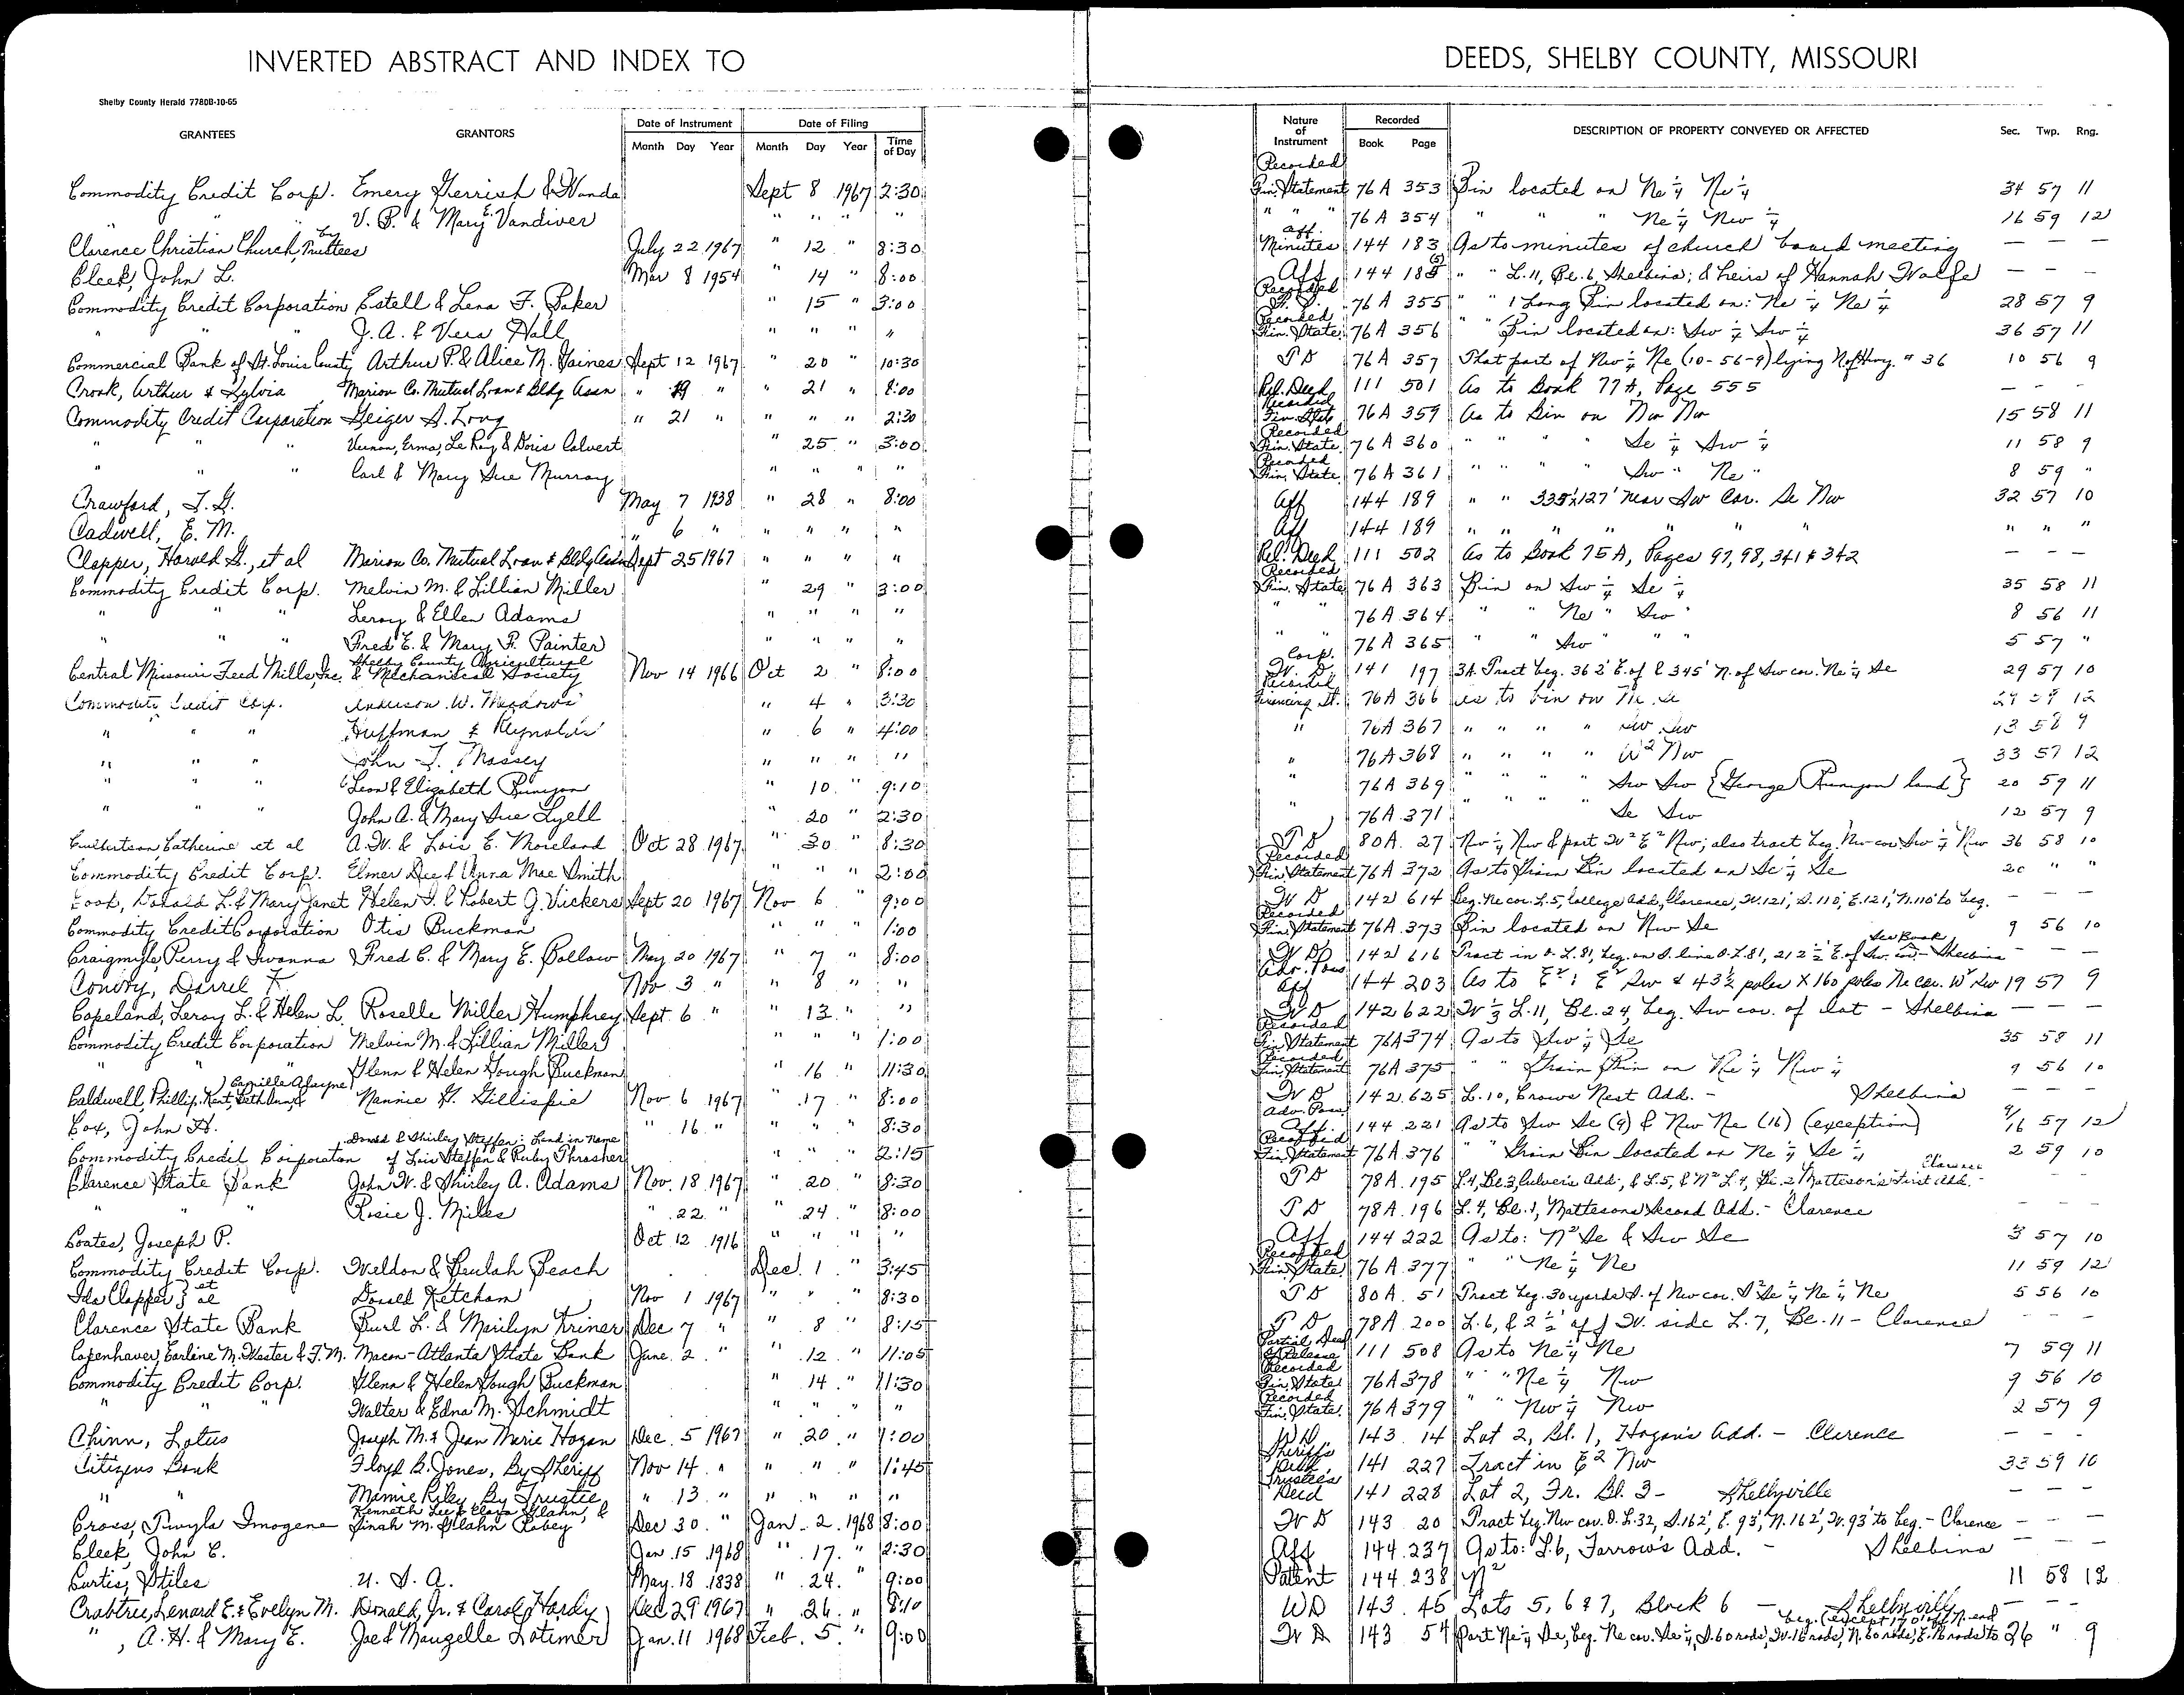 INVERTED ABSTRACT AND INDEX TO DEEDS, SHELBY COUNTY, MISSOURI
Shelby County Herald 7780B-10-65
GRANTEES GRANTORS Date of Instrument Month Day Year Date of Filing Month Day Year Time of Day Nature of Instrument Recorded Book Page DESCRIPTION OF PROPERTY CONVEYED OR AFFECTED Sec. Twp. Rng.
Commodity Credit Corp. Emery Gerrish & Wanda Sept 8 1967 2:30 Recorded Fin. Statement 76A 353 Bin located on Ne 1/4 Ne 1/4 34 57 11
" " " V. P. & Mary E. Vandiver " " " " " " " 76A 354 " " " Ne 1/4 Nw 1/4 16 59 12
Clarence Christian Church, by Trustees July 22 1967 " 12 " 8:30 Aff. Minutes 144 183 As to minutes of church board meeting — — —
Cleek, John L. Mar 8 1954 " 14 " 8:00 Aff 144 185 (5) " " L. 11, Bl. 6, Shelbina; & heirs of Hannah Wolfe — — —
Commodity Credit Corporation Estell & Lena F. Baker " 15 " 3:00 Recorded F. S. 76A 355 " " 1 Long Bin located on: Ne 1/4 Ne 1/4 28 57 9
" " " J. A. & Vera Hall " " " " Recorded Fin. State. 76A 356 " " Bin located on: Sw 1/4 Sw 1/4 36 57 11
Commercial Bank of St. Louis County Arthur P. & Alice M. Gaines Sept 12 1967 " 20 " 10:30 T D 76A 357 That part of Nw 1/4 Ne (10-56-9) lying N. of Hwy. # 36 10 56 9
Crook, Arthur & Sylvia Marion Co. Mutual Loan & Bldg Assn " 19 " " 21 " 8:00 Rel. Deed 111 501 As to Book 77A, Page 555 — — —
Commodity Credit Corporation Geiger S. Long " 21 " " " " 2:30 Recorded Fin. State 76A 359 As to Bin on Nw Nw 15 58 11
" " " Vernon, Erma, Le Roy & Doris Calvert " 25 " 3:00 Recorded Fin. State. 76A 360 " " " " Se 1/4 Sw 1/4 11 58 9
" " " Carl & Mary Sue Murray " " " " Recorded Fin. State. 76A 361 " " " " Sw " Ne " 8 59 "
Crawford, T. G. May 7 1938 " 28 " 8:00 Aff 144 189 " " 335'x127' near Sw Cor. Se Nw 32 57 10
Cadwell, E. M. " 6 " " " " " Aff 144 189 " " " " " " " " " "
Clapper, Harold G., et al Marion Co. Mutual Loan & Bldg Assn Sept 25 1967 " " " " Rel. Deed 111 502 As to Book 75A, Pages 97, 98, 341 & 342 — — —
Commodity Credit Corp. Melvin M. & Lillian Miller " 29 " 3:00 Recorded Fin. State 76A 363 Bin on Sw 1/4 Se 1/4 35 58 11
" " " Leroy & Ellen Adams " " " " " " 76A 364 " " Ne " Sw " 8 56 11
" " " Fred E. & Mary F. Painter " " " " " " 76A 365 " " Sw " " " 5 57 "
Central Missouri Feed Mills, Inc. Shelby County Agricultural & Mechanical Society Nov 14 1966 Oct 2 " 8:00 Corp. W. D. 141 197 3A. Tract beg. 362' E. of & 345' N. of Sw cor. Ne 1/4 Se 29 57 10
Commodity Credit Corp. Anderson W. Meadows " 4 " 3:30 Recorded Financing St. 76A 366 as to bin on Ne Se 29 59 12
" " " Huffman & Reynolds " 6 " 4:00 " 76A 367 " " " " Sw Sw 13 58 9
" " " John T. Massey " " " " " 76A 368 " " " " W2 Nw 33 57 12
" " " Leon & Elizabeth Runyon " 10 " 9:10 " 76A 369 " " " " Sw Sw {George Runyon land} 20 59 11
" " " John A. & Mary Sue Lyell " 20 " 2:30 " 76A 371 " " " " Se Sw 12 57 9
Culbertson, Catherine et al A. W. & Lois E. Moreland Oct 28 1967 " 30 " 8:30 T D 80A 27 Nw 1/4 Nw & part W2 E2 Nw; also tract beg. Nw cor. Sw 1/4 Nw 36 58 10
Commodity Credit Corp. Elmer Dee & Anna Mae Smith " " " 2:00 Recorded Fin. Statement 76A 372 As to Grain Bin located on Se 1/4 Se 20 " "
Cook, Donald L. & Mary Janet Helen I. & Robert G. Vickers Sept 20 1967 Nov 6 " 9:00 W D 142 614 Beg. Ne cor. L. 5, College Add., Clarence, W. 121', S. 110', E. 121', N. 110' to beg. — —
Commodity Credit Corporation Otis Buckman " " " 1:00 Recorded Fin. Statement 76A 373 Bin located on Nw Se 9 56 10
Craigmyle, Perry & Iwanna Fred C. & Mary E. Bollow May 20 1967 " 7 " 8:00 W D 142 616 Tract in O. L. 81, beg. on S. line O. L. 81, 212 1/2' E. of Sw. cor. - Shelbina See Book — —
Conity, Darrel F. Nov 3 " " 8 " " Adv. Poss Aff 144 203 As to E2; E2 Sw & 43 1/2 poles X 160 poles Ne cor. W2 Sw 19 57 9
Copeland, Leroy L. & Helen L. Roselle Miller Humphrey Sept. 6 " " 13 " " W D 142 622 W 1/3 L. 11, Bl. 24, beg. Sw cor. of lot - Shelbina — — —
Commodity Credit Corporation Melvin M. & Lillian Miller " " " 1:00 Recorded Fin. Statement 76A 374 As to Sw 1/4 Se 35 58 11
" " " Glenn & Helen Gough Buckman " 16 " 11:30 Recorded Fin. Statement 76A 375 " " Grain Bin on Ne 1/4 Nw 1/4 9 56 10
Caldwell, Phillip Kent, Beth Ann, & Camille Alayne Nannie G. Gillispie Nov 6 1967 " 17 " 8:00 W D 142 625 L. 10, Crows Nest Add. - Shelbina — — —
Cox, John H. " 16 " " " " 8:30 Adv. Poss Aff. 144 221 As to Sw Se (9) & Nw Ne (16) (exception) 9/16 57 12
Commodity Credit Corporation Donald & Shirley Steffen: Land in name of Lois Steffen & Ruby Thrasher " " " 2:15 Recorded Fin. Statement 76A 376 " " Grain Bin located on Ne 1/4 Se 1/4 2 59 10
Clarence State Bank John W. & Shirley A. Adams Nov. 18 1967 " 20 " 8:30 T D 78A 195 L. 4, Bl. 3, Culver's Add., & L. 5, & N2 L. 4, Bl. 2 Matteson's First Add. - Clarence
" " " Rosie J. Miles " 22 " " 24 " 8:00 T D 78A 196 L. 4, Bl. 1, Mattesons Second Add. - Clarence — — —
Coates, Joseph P. Oct 12 1916 " " " " Aff 144 222 As to: N2 Se & Sw Se 3 57 10
Commodity Credit Corp. Weldon & Beulah Beach Dec. 1 " 3:45 Recorded Fin. State. 76A 377 " " Ne 1/4 Ne 11 59 12
Ida Clapper } et al Donald Ketcham Nov 1 1967 " " " 8:30 T D 80A 51 Tract beg. 30 yards S. of Nw cor. S2 Se 1/4 Ne 1/4 Ne 5 56 10
Clarence State Bank Burl L. & Marilyn Kriner Dec 7 " " 8 " 8:15 T D 78A 200 L. 6, & 2 1/2' off W. side L. 7, Bl. 11 - Clarence — —
Copenhaver, Earline M. Wester & F. M. Macon-Atlanta State Bank June 2 " " 12 " 11:05 Partial Deed of Release 111 508 As to Ne 1/4 Ne 7 59 11
Commodity Credit Corp. Glenn & Helen Gough Buckman " 14 " 11:30 Recorded Fin. State 76A 378 " " Ne 1/4 Nw 9 56 10
" " " Walter & Edna M. Schmidt " " " " Recorded Fin. State. 76A 379 " " Nw 1/4 Nw 2 57 9
Chinn, Lotus Joseph M. & Jean Marie Hogan Dec. 5 1967 " 20 " 1:00 W D 143 14 Lot 2, Bl. 1, Hogan's Add. - Clarence — — —
Citizens Bank Floyd B. Jones, By Sheriff Nov 14 " " " " 1:45 Sheriff's Deed 141 227 Tract in E2 Nw 33 59 10
" " Mamie Riley, By Trustee " 13 " " " " " Trustee's Deed 141 228 Lot 2, Fr. Bl. 3 - Shellyville — — —
Cross, Twyla Imogene Kenneth Lee & Clara Glahn, & Dinah M. Glahn Robey Dec 30 " Jan. 2 1968 8:00 W D 143 20 Tract beg. Nw cor. O. L. 32, S. 162', E. 93', N. 162', W. 93' to beg. - Clarence — — —
Cleek, John C. Jan. 15 1968 " 17 " 2:30 Aff 144 237 As to: L. 6, Farrow's Add. - Shelbina — —
Curtis, Stiles U. S. A. May 18 1838 " 24 " 9:00 Patent 144 238 N2 11 58 12
Crabtree, Lenard E. & Evelyn M. Donald, Jr. & Carol Hardy Dec 29 1967 " 26 " 8:10 WD 143 45 Lots 5, 6 & 7, Block 6 - Shelbyville — — —
" , A. H. & Mary E. Joe & Mauzelle Latimer Jan. 11 1968 Feb. 5 " 9:00 W D 143 54 Part Ne 1/4 Se, beg. Ne cor. Se 1/4, S. 60 rods, W. 16 rods, N. 60 rods, E. 16 rods to beg. (except 170' off N. end 26 " 9